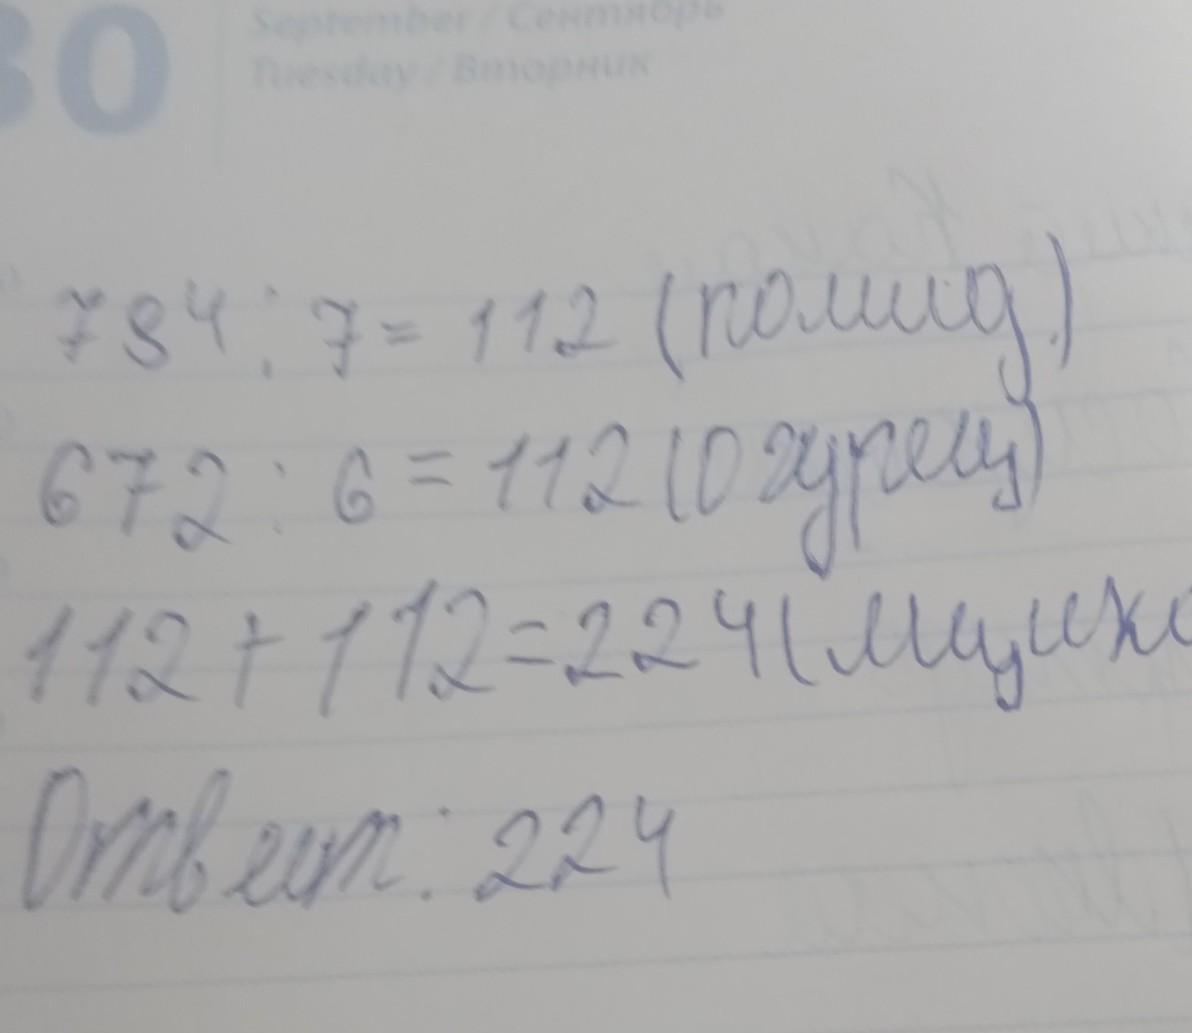 30 September / Сентябрь
Tuesday / Вторник
784 : 7 = 112 (помид.)
672 : 6 = 112 (огурец)
112 + 112 = 224 (ящик
Ответ: 224